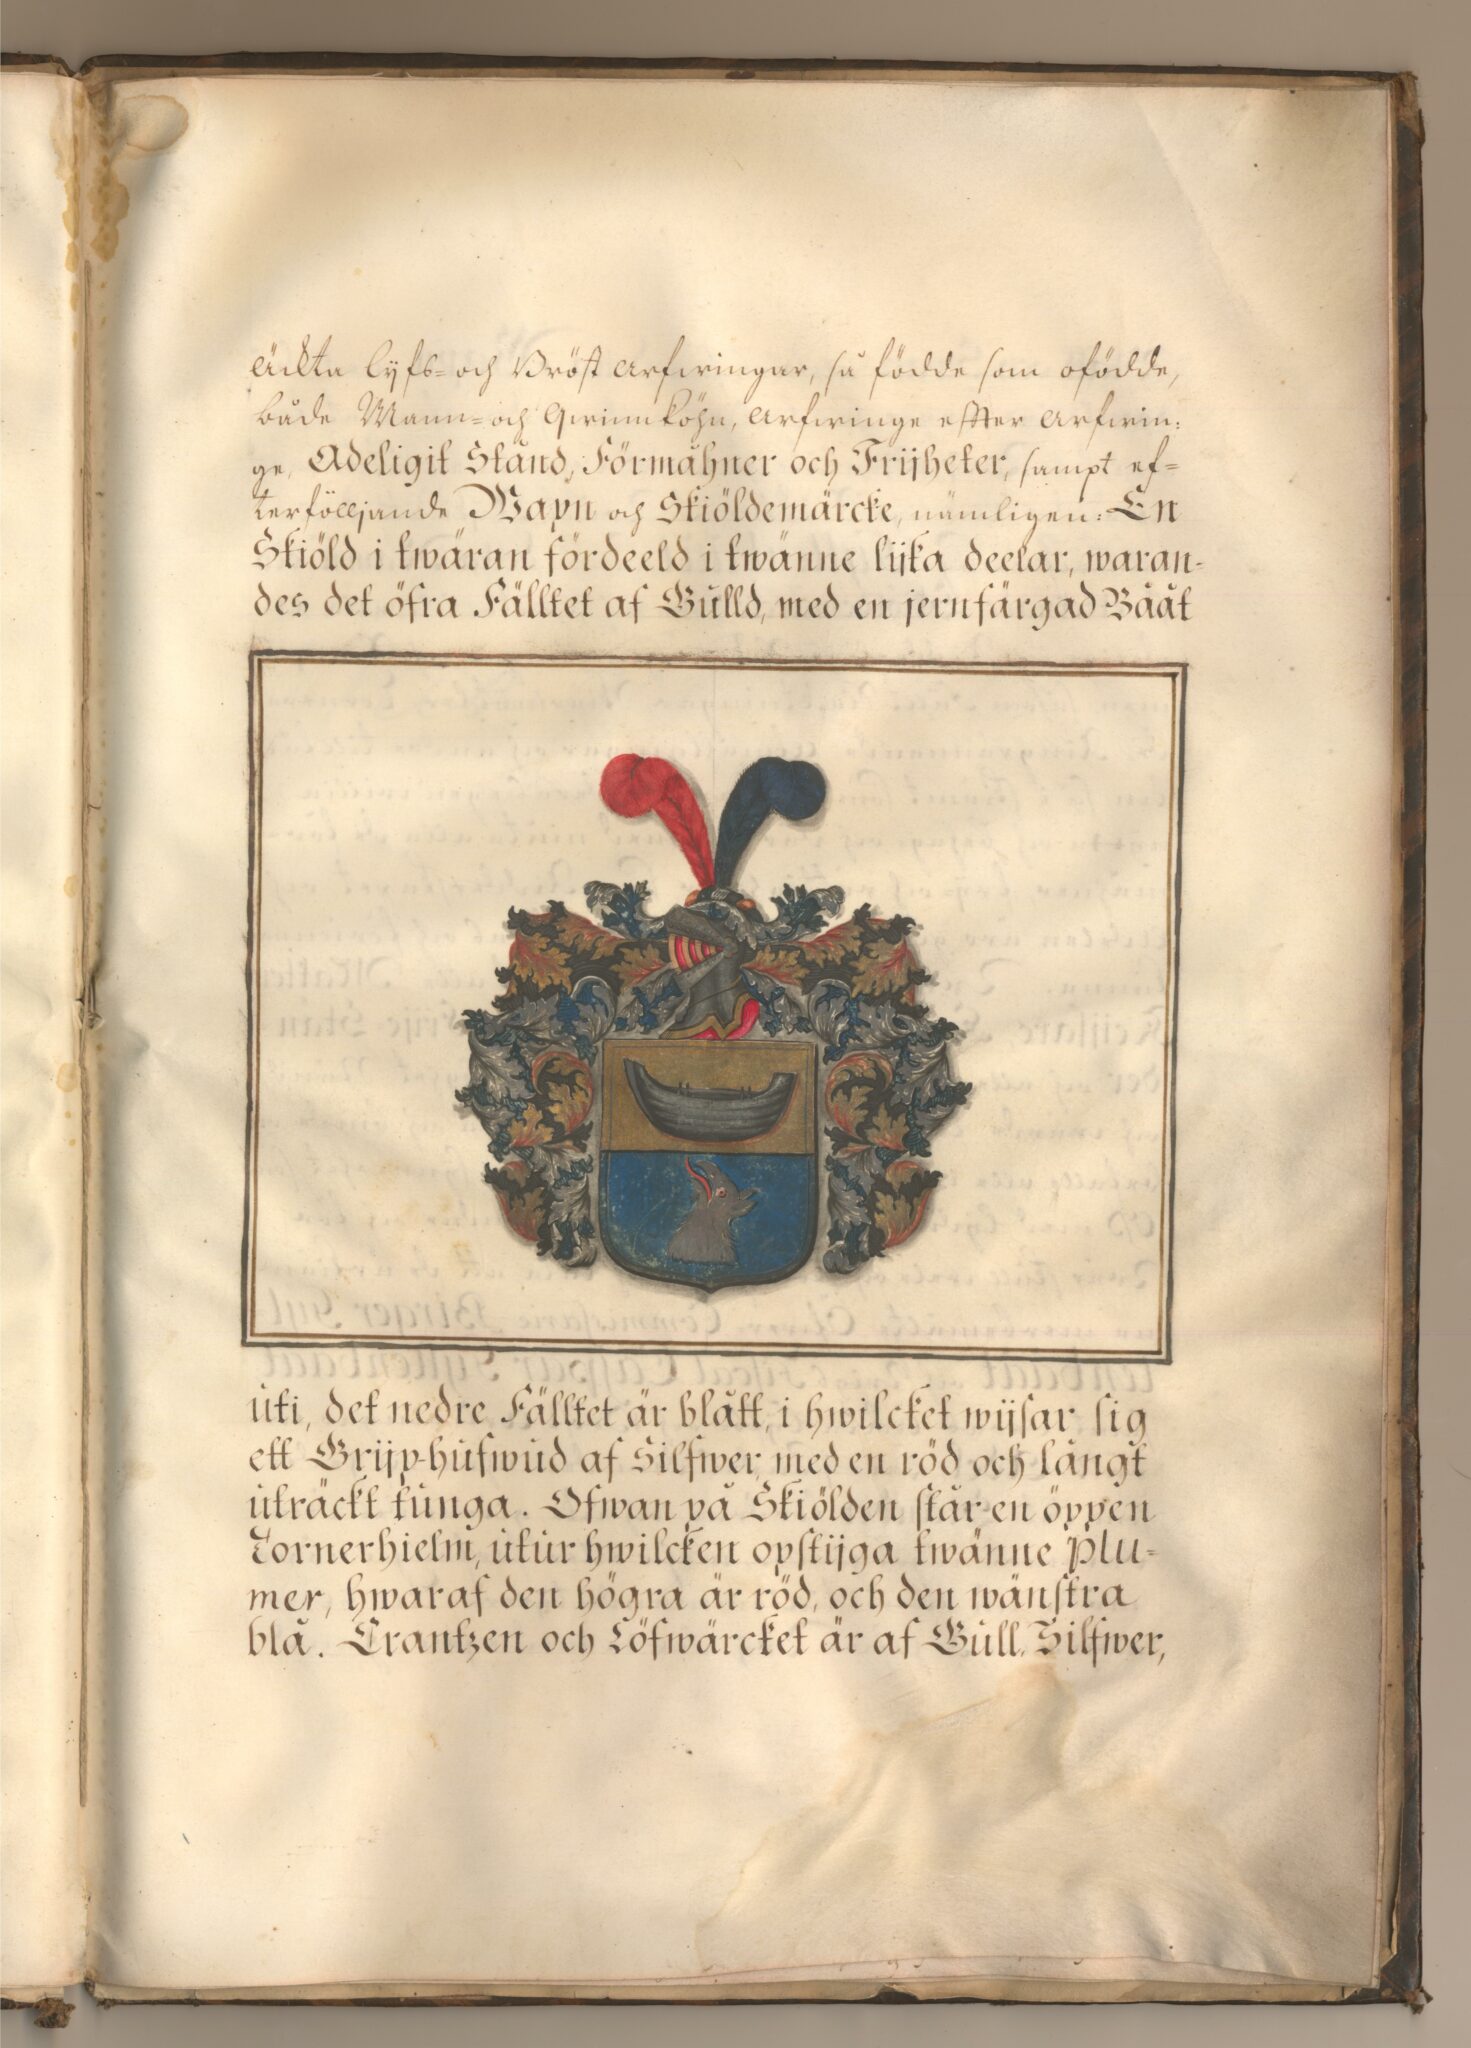 äckta lijfs- och Bröst arfwingar, så födde som ofödde,
både Mann- och Qwinnköhn, arfwinge effter arfwin:
ge, Adeligit Stånd, Förmåhner och Frijheter, sampt ef-
terfölljande Wapn och Skiöldemärcke, nämligen: En
Skiöld i twäran fördeeld i twänne lijka deelar, waran-
des det öfra Fälltet af Gulld, med en jernfärgad Bååt
uti, det nedre Fälltet är blått, i hwilcket wijsar sig
ett Grijp-hufwud af Silfwer med en röd och långt
uträckt tunga. Ofwan på Skiölden står en öppen
Tornerhielm, utur hwilcken opstijga twänne Plu-
mer, hwaraf den högra är röd, och den wänstra
blå. Crantzen och Löfwärcket är af Gull, Silfwer,